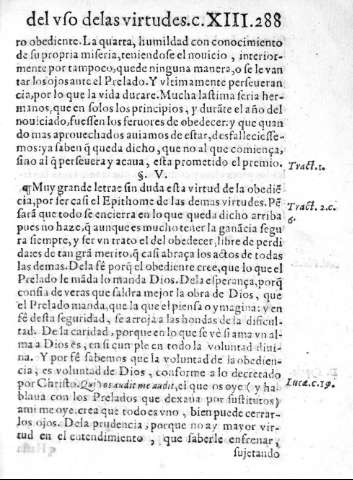 del vso delas virtudes.c.XIII.288
ro obediente. La quarta, humildad con conocimiento
de su propria miseria, teniendose el nouicio, interior-
mente por tampoco, que de ninguna manera, o se le van
tar los ojos ante el Prelado. Y vltimamente perseueran
cia, por lo que la vida durare. Mucha lastima seria her-
manos, que en solos los principios, y durãte el año del
nouiciado, fuessen los feruores de obedecer: y que quan
do mas aprouechados auiamos de estar, desfalleciesse-
mos: ya saben q̃ queda dicho, que no al que comiença,
sino al q̃ perseuera y acaua, esta prometido el premio.
Tract.1.
§. V.
¶Muy grande letra es sin duda esta virtud de la obediẽ
cia, por ser casi el Epithome de las demas virtudes. Pẽ
Tract. 2.c.
6.
sarà que todo se encierra en lo que queda dicho arriba
pues no haze. q̃ aunque es mucho tener la ganãcia segu
ra siempre, y ser vn trato el del obedecer, libre de perdi
das: es de tan grã merito, q̃ casi abraça los actos de todas
las demas. De la fè porq̃ el obediente cree, que lo que el
Prelado le mãda lo manda Dios. De la esperança, porq̃
confia de veras que saldra mejor la obra de Dios, que
el Prelado manda, que la que el piensa o ymagina: y en
fè desta seguridad, se arroja a las hondas de la dificul-
tad. De la caridad, porque en lo que se vè si ama vn al-
ma a Dios es, en si cumple en todo la voluntad diui-
na. Y por fè sabemos que la voluntad de la obedien-
cia, es voluntad de Dios, conforme a lo decretado
por Christo. Qui vos audit me audit, el que os oye (y ha-
Lucæ.c.19.
blaua con los Prelados que dexaua por sustitutos)
a mi me oye. crea que todo es vno, bien puede cerrar-
los ojos. De la prudencia, porque no ay mayor vir-
tud en el entendimiento, que saberle enfrenar,
sujetando